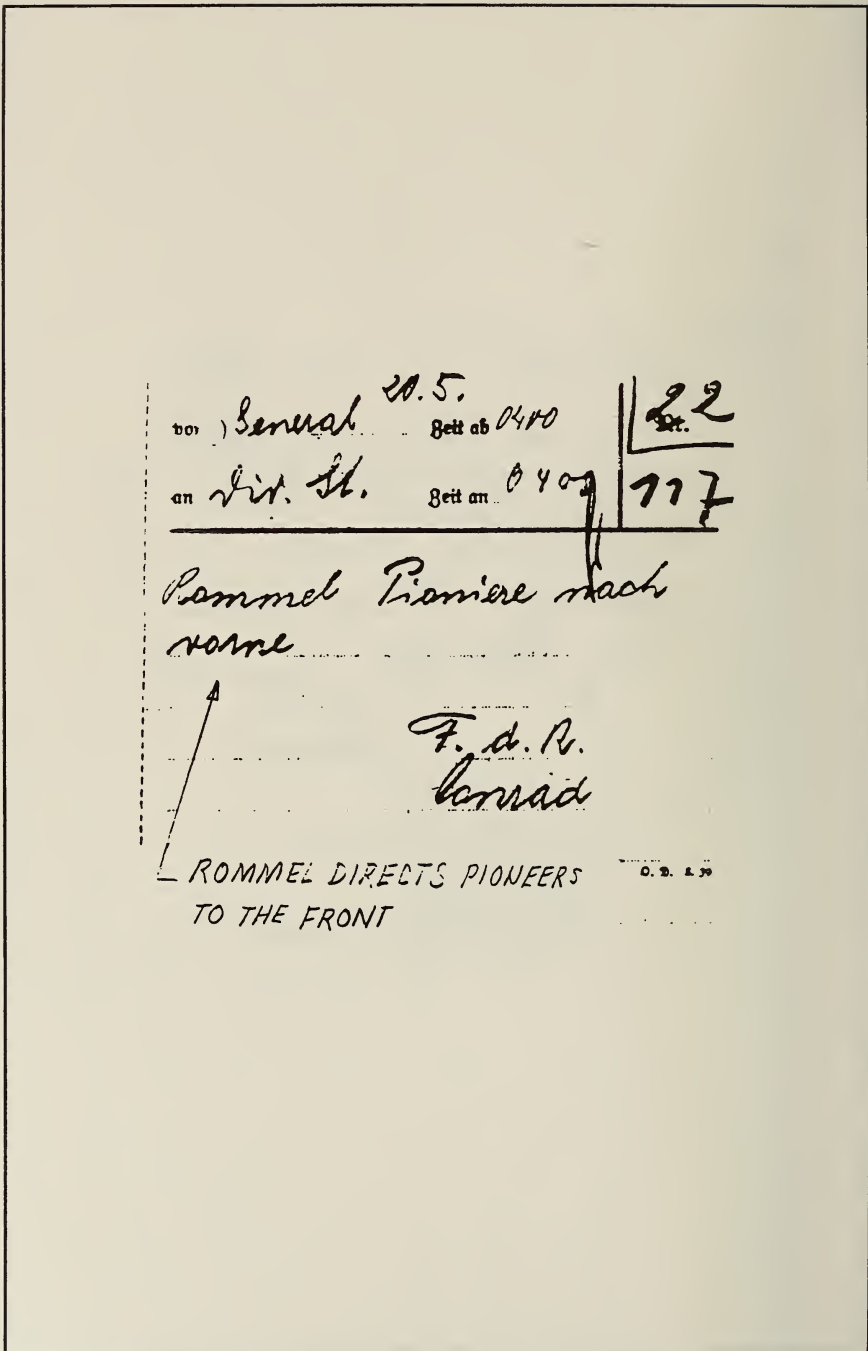 20.5.
von General Zeit ab 0400 22
Nr.
an Div. St. Zeit an 0409 117
Rommel Pioniere nach
vorne
F. d. R.
Conrad
ROMMEL DIRECTS PIONEERS
TO THE FRONT